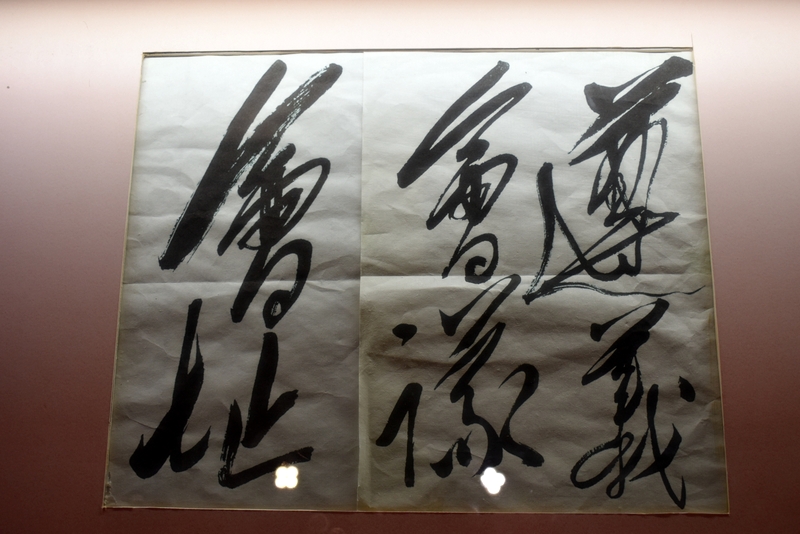 遵義
會議
會址